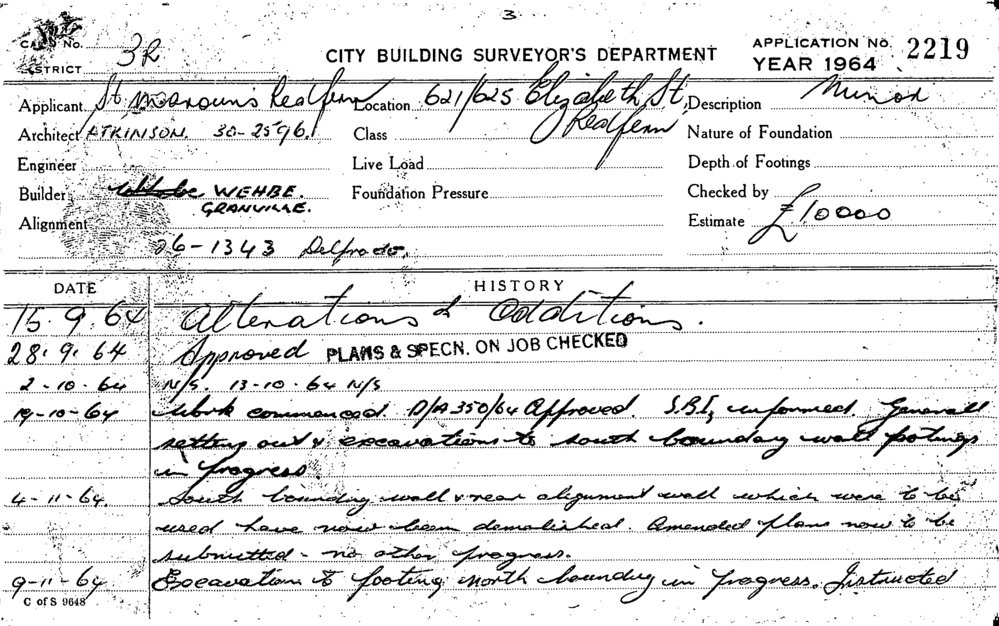 3
CARD No.
DISTRICT 3R
CITY BUILDING SURVEYOR'S DEPARTMENT
APPLICATION No. 2219
YEAR 1964
Applicant St Maroun's Redfern Location 621/625 Elizabeth St, Redfern Description Minor
Architect ATKINSON. 30-2596. Class Nature of Foundation
Engineer Live Load Depth of Footings
Builder WEHBE. Foundation Pressure Checked by
GRANVILLE.
Alignment Estimate £10000
26-1343 Delprado.
DATE HISTORY
15.9.64 Alterations & Additions.
28.9.64 Approved PLANS & SPECN. ON JOB CHECKED
2-10-64 N/S. 13-10-64 N/S
19-10-64 Work commenced. D/A 350/64 Approved. S.B.I. informed. Generall
setting out & excavations to south boundary wall footings
in progress.
4-11-64. South boundary wall & rear alignment wall which were to be
used have now been demolished. Amended plans now to be
submitted - no other progress.
9-11-64 Excavation to footing north boundary in progress. Instructed
C of S 9648